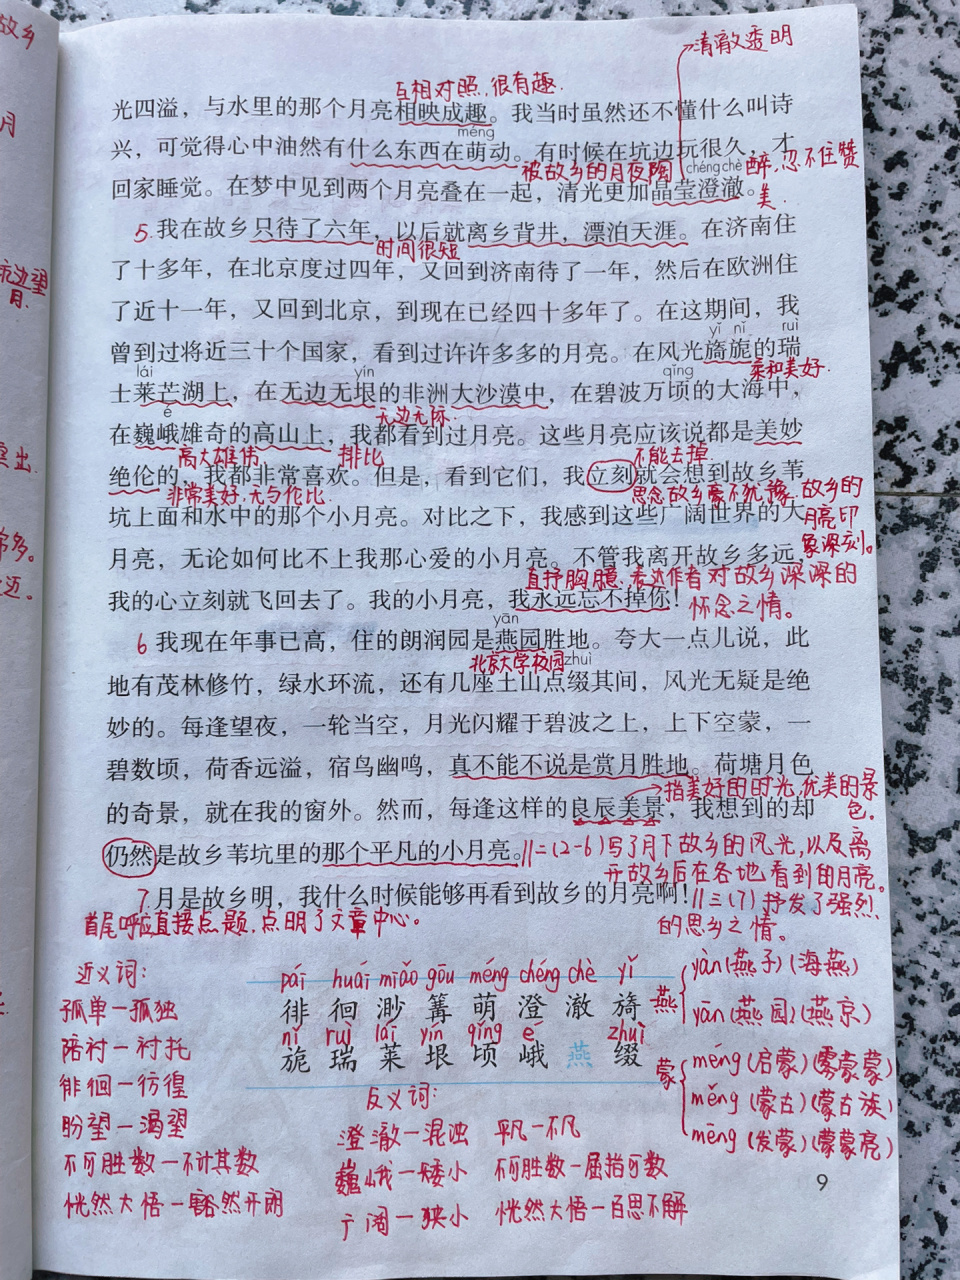 故乡
月
坑边望
月.
突出.
常多。
之迈。
清澈透明
互相对照,很有趣.
光四溢，与水里的那个月亮相映成趣。我当时虽然还不懂什么叫诗
méng
兴，可觉得心中油然有什么东西在萌动。有时候在坑边玩很久，才
被故乡的月夜陶醉,忍不住赞
美.
chéng chè
回家睡觉。在梦中见到两个月亮叠在一起，清光更加晶莹澄澈。
5.我在故乡只待了六年，以后就离乡背井，漂泊天涯。在济南住
时间很短
了十多年，在北京度过四年，又回到济南待了一年，然后在欧洲住
了近十一年，又回到北京，到现在已经四十多年了。在这期间，我
yǐ nǐ ruì
曾到过将近三十个国家，看到过许许多多的月亮。在风光旖旎的瑞
柔和美好.
lái yín qǐng
士莱芒湖上，在无边无垠的非洲大沙漠中，在碧波万顷的大海中，
无边无际.
é
在巍峨雄奇的高山上，我都看到过月亮。这些月亮应该说都是美妙
高大雄伟 排比 不能去掉
绝伦的，我都非常喜欢。但是，看到它们，我立刻就会想到故乡苇
非常美好,无与伦比. 思念故乡毫不犹豫.故乡的
月亮印
象深刻。
坑上面和水中的那个小月亮。对比之下，我感到这些广阔世界的大
月亮，无论如何比不上我那心爱的小月亮。不管我离开故乡多远，
直抒胸臆.表达作者对故乡深深的
怀念之情。
我的心立刻就飞回去了。我的小月亮，我永远忘不掉你！
yān
6 我现在年事已高，住的朗润园是燕园胜地。夸大一点儿说，此
北京大学校园 zhuì
地有茂林修竹，绿水环流，还有几座土山点缀其间，风光无疑是绝
妙的。每逢望夜，一轮当空，月光闪耀于碧波之上，上下空蒙，一
碧数顷，荷香远溢，宿鸟幽鸣，真不能不说是赏月胜地。荷塘月色
指美好的时光,优美的景
色.
的奇景，就在我的窗外。然而，每逢这样的良辰美景，我想到的却
仍然是故乡苇坑里的那个平凡的小月亮。
‖二(2-6)写了月下故乡的风光,以及离
开故乡后在各地看到的月亮。
7 月是故乡明，我什么时候能够再看到故乡的月亮啊！
‖三(7)抒发了强烈
的思乡之情。
首尾呼应直接点题,点明了文章中心。
pái huái miǎo gōu méng chéng chè yǐ
徘 徊 渺 篝 萌 澄 澈 旖
nǐ ruì lái yín qǐng é zhuì
旎 瑞 莱 垠 顷 峨 燕 缀
燕
yàn(燕子)(海燕)
yān(燕园)(燕京)
蒙
méng(启蒙)(雾蒙蒙)
měng(蒙古)(蒙古族)
mēng(发蒙)(蒙蒙亮)
近义词:
孤单—孤独
陪衬—衬托
徘徊—彷徨
盼望—渴望
不可胜数—不计其数
恍然大悟—豁然开朗
反义词:
澄澈—混浊 平凡—不凡
巍峨—矮小 不可胜数—屈指可数
广阔—狭小 恍然大悟—百思不解
9